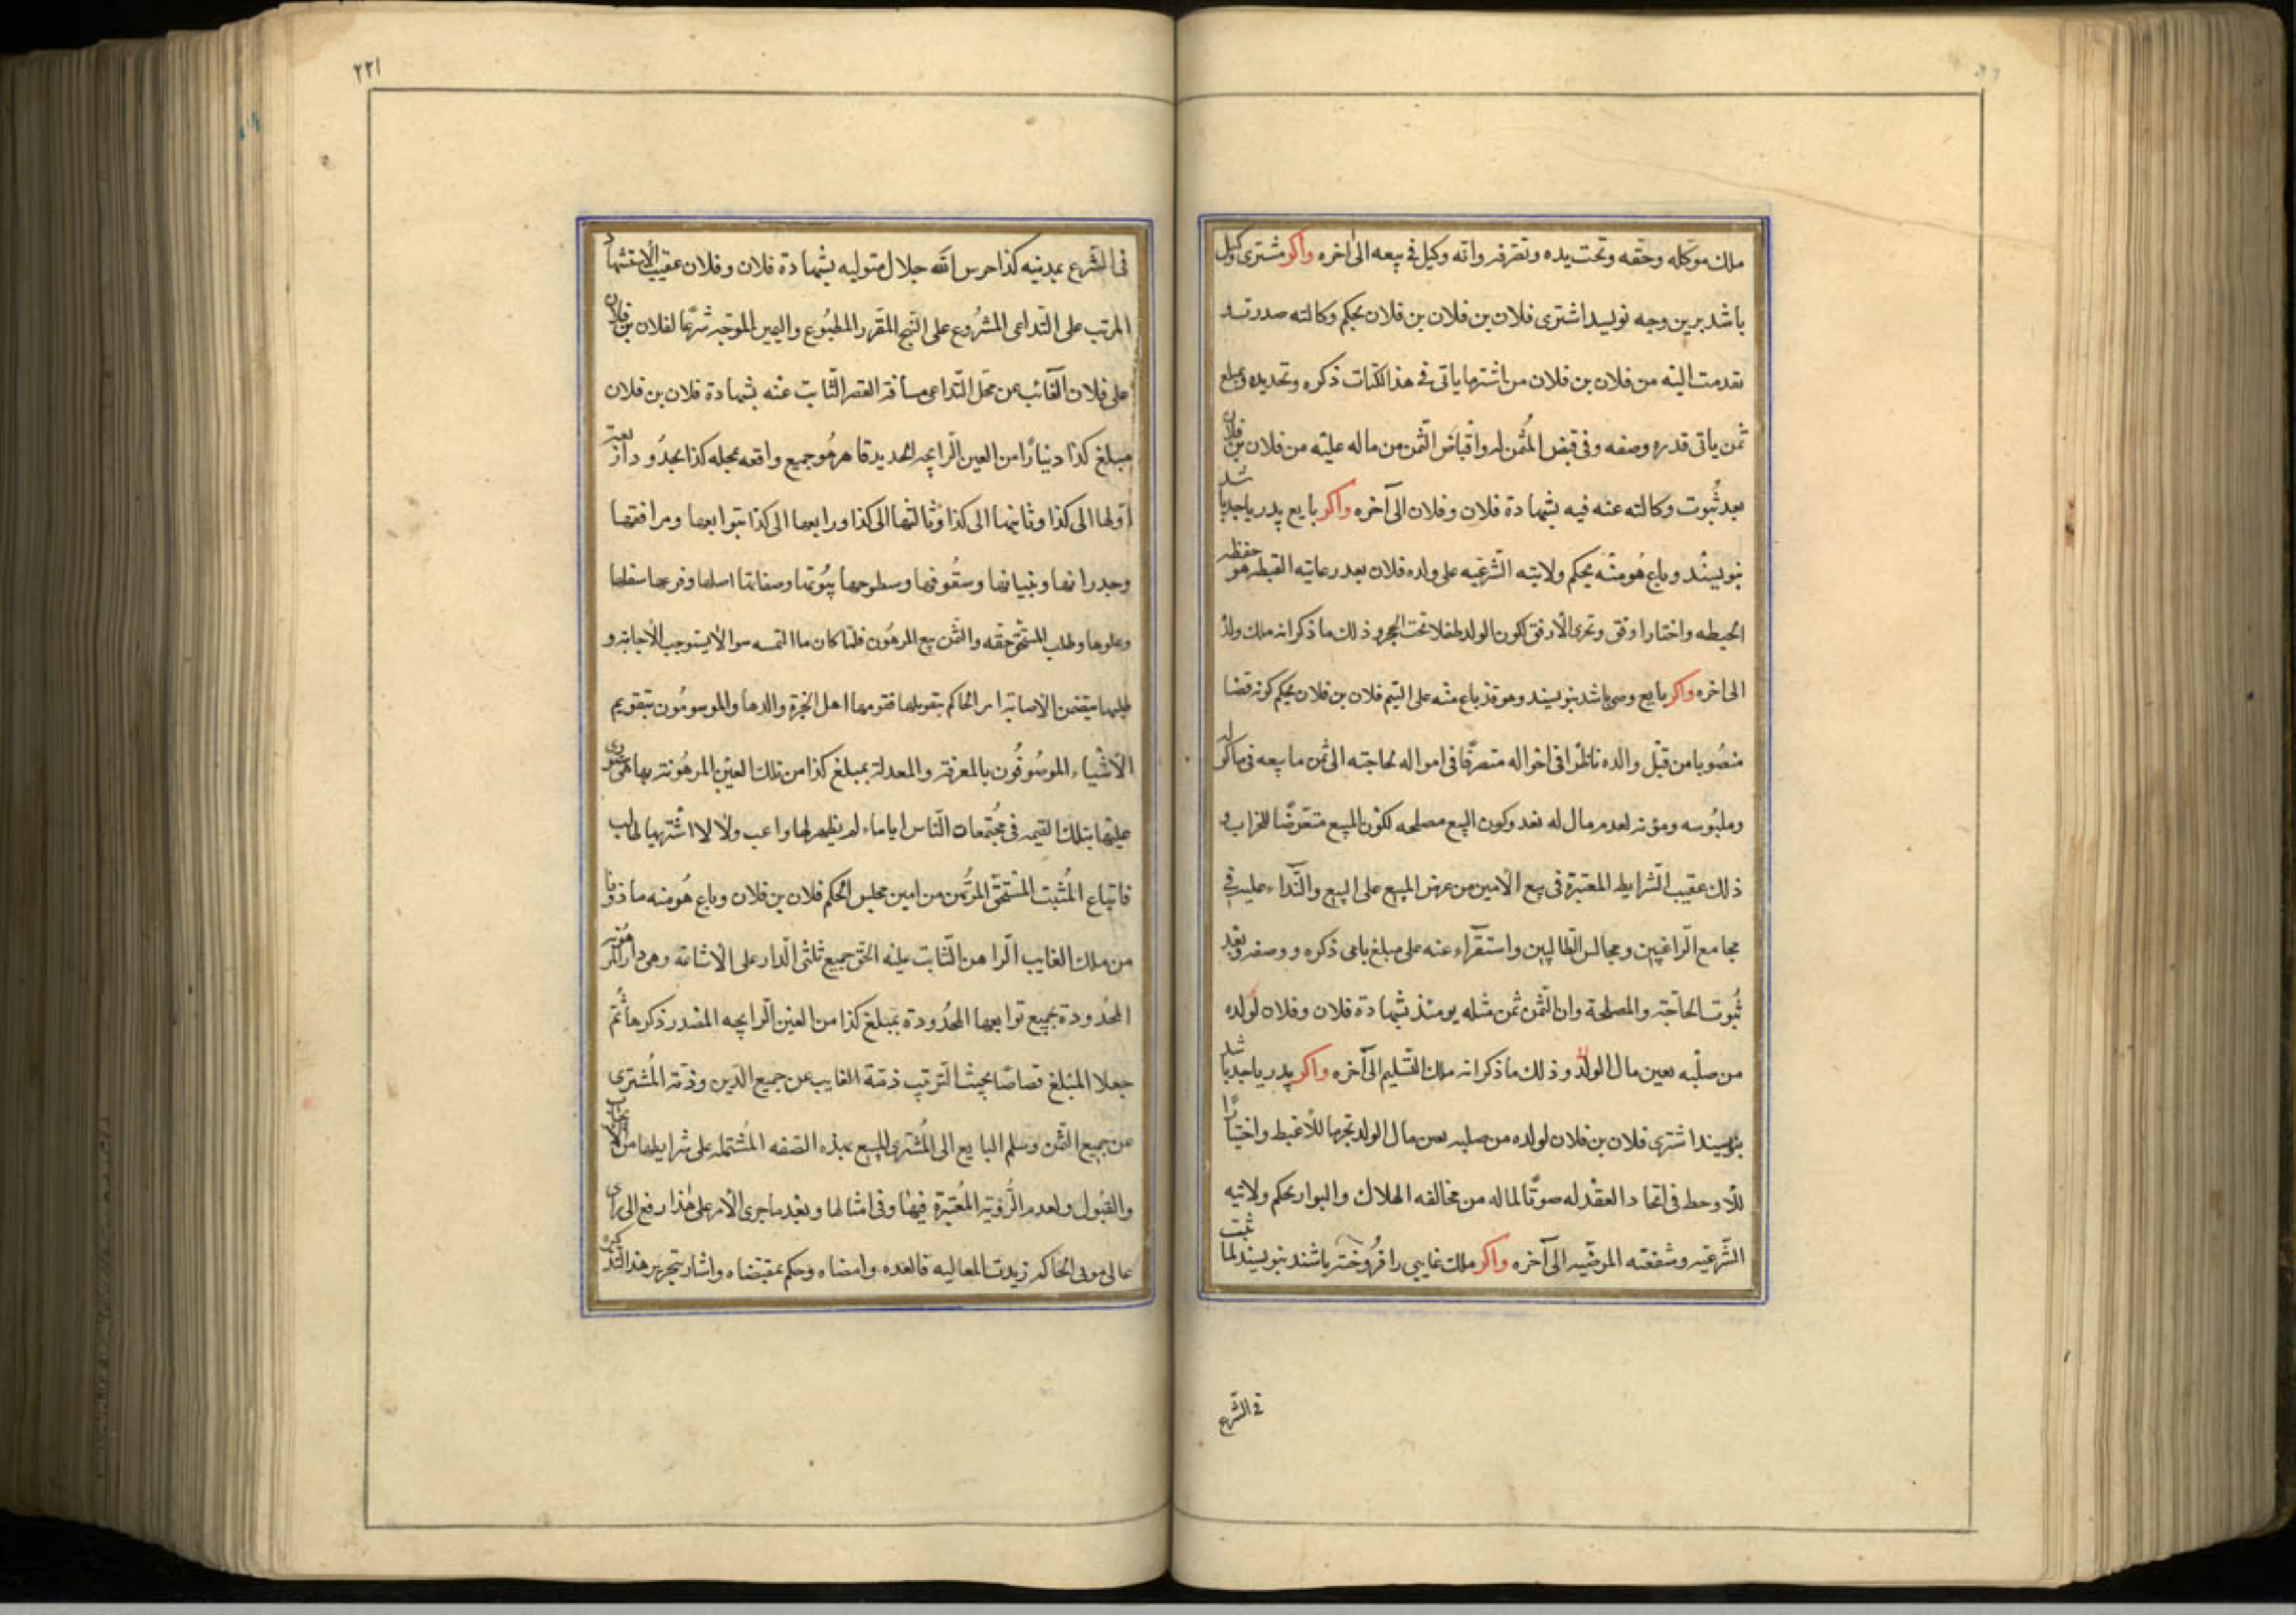 ملك موكله وحقه وتحت يده وتصرفه وانه وكيل فى بيعه الى اخره واكر مشترى وكيل
باشد برين وجه نويسد اشترى فلان بن فلان بن فلان بحكم وكالته صدرت و
تقدمت اليه من فلان بن فلان من اشتر ما ياتى فى هذا الكتاب ذكره وتحديده وبمبلغ
ثمن ياتى قدره وصفه وفى قبض المثمن له واقباض الثمن من ماله عليه من فلان بن فلان
بعد ثبوت وكالته عنه فيه بشهادة فلان وفلان الى آخره واكر بايع پدر يا جد باشد
بنويسند وباع هو منه بحكم ولايته الشرعيه على ولده فلان بعد رعايته القبطه هو حفظه
الحيطه واختار اوفق وتحرى الارفق لكون الولد طفلا تحت الحجر وذلك ما ذكر انه ملك ولد
الى اخره واكر بايع وصى باشد بنويسند وهو قد باع منه على اليتيم فلان بن فلان بحكم كونه قضا
منصوبا من قبل والده ناظرا فى احواله متصرفا فى امواله لحاجته الى ثمن ما يبيعه فى ماكوله
وملبوسه ومؤنه لعدم مال له نقد وكون البيع مصلحه لكون المبيع متعرضا للخراب و
ذلك عقيب الشرايط المعتبرة فى بيع الامين من عرض المبيع على البيع والنداء عليه فى
مجامع الراغبين ومجالس الطالبين واستقراء عنه على مبلغ ياتى ذكره ووصفه وبعد
ثبوت الحاجة والمصلحة وان الثمن ثمن مثله يومئذ بشهادة فلان وفلان لولده
من صلبه بعين مال الولد وذلك ما ذكر انه ملك التسليم الى آخره واكر پدر يا جد باشد
بنويسند اشترى فلان بن فلان لولده من صلبه بعين مال الولد تحريا للاغبط واختيارا
للاوحط فى اتحاد العقد له صونا لماله من مخالفه الهلاك والبوار بحكم ولايته
الشرعيه وشفقته المرضيه الى آخره واكر ملك غايبى را فروخته باشند بنويسند لما ثبت
فى الشرع
٢٢١
فى الشرع بمدينه كذا حرس الله جلال متوليه بشهادة فلان وفلان عقيب الاستشهاد
المرتب على التداعى المشروع على النهج المقرر المطبوع واليمين الموجه شرعا لفلان بن فلان
على فلان الغائب عن محل التداعى مسافة القصر الثابت عنه بشهادة فلان بن فلان
مبلغ كذا دينارا من العين الرايجه الحديد قاهر هو جميع واقعه بمحله كذا بحدود دار
اولها الى كذا وثانيها الى كذا وثالثها الى كذا ورابعها الى كذا بتوابعها ومرافقها
وجدرانها وبنيانها وسقوفها وسطوحها بيوتها وصفاتها اصلها وفرعها سفلها
وعلوها وطلب المستحق حقه والثمن بيع المرهون فلما كان ما التمسه سوالا يستوجب الاجابة و
طلبها يقتضى الاصابة امر الحاكم بتقويمها فقومها اهل الخبرة والدها والموسومون بتقويم
الاشياء الموسوفون بالمعرفة والمعدلة بمبلغ كذا من تلك العين المرهونة بها هو
عليها بتلك القيمه فى مجتمعات الناس اياما، لم يظهر لها راغب ولا لاشتريها طالب
فابتاع المثبت المستحق المرتهن من امين مجلس الحكم فلان بن فلان وباع هو منه ماذونا
من ملك الغايب الراهن الثابت عليه الحق جميع ثلثى الدار على الاشاعه وهى دار
المحدودة بجميع توابعها المحدودة بمبلغ كذا من العين الرايجه المصدر ذكرها ثم
جعلا المبلغ قصاصا بحيث الترتيب ذمة الغايب عن جميع الدين وذمة المشترى
عن جميع الثمن وسلم البايع الى المشترى المبيع بهذه الصفقه المشتمله على شرايطها من
والقبول ولعدم الرؤية المعتبرة فيها وفى امثالها وبعد ما جرى الامر على هذا رفع الى راى
عالى مولى الحاكم زيدت معاليه فانفده وامضاه وحكم بمقتضاه واشار بتحرير هذه التذكره